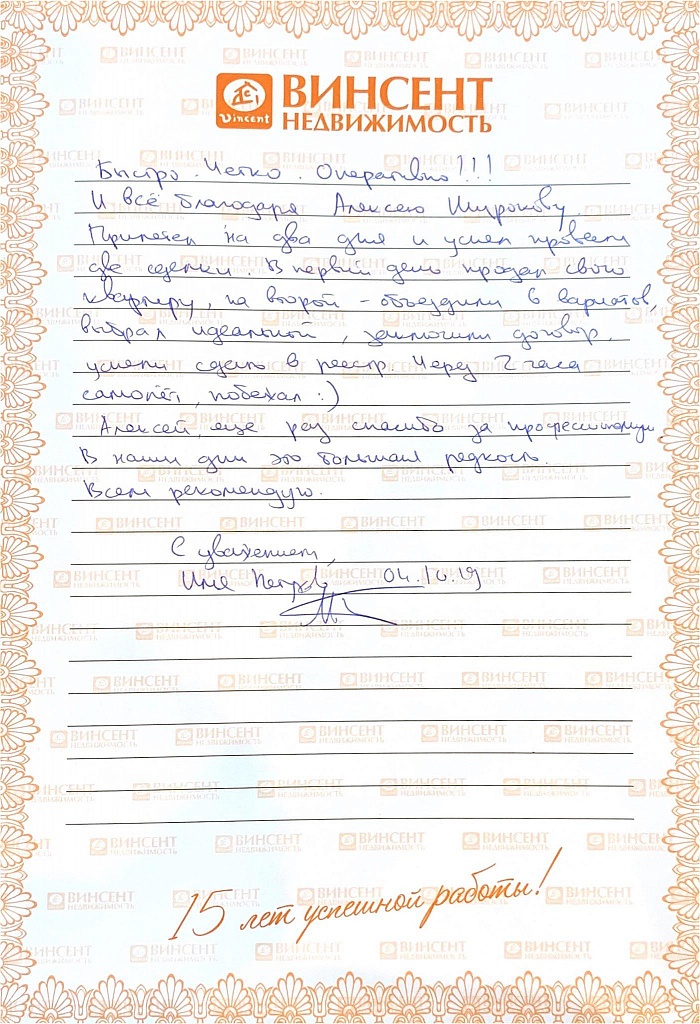 Vincent
ВИНСЕНТ
НЕДВИЖИМОСТЬ
Быстро. Четко. Оперативно!!!
И всё благодаря Алексею Широкову.
Прилетел на два дня и успел провести
две сделки. В первый день продал свою
квартиру, на второй - объездили 6 вариатов,
выбрал идеальной, заключили договор,
успели сдать в реестр. Через 2 часа
самолёт, побежал :)
Алексей, еще раз спасибо за профессионализм
В наши дни это большая редкость.
Всем рекомендую.
С уважением,
Илья Петров 04.10.19
15 лет успешной работы!